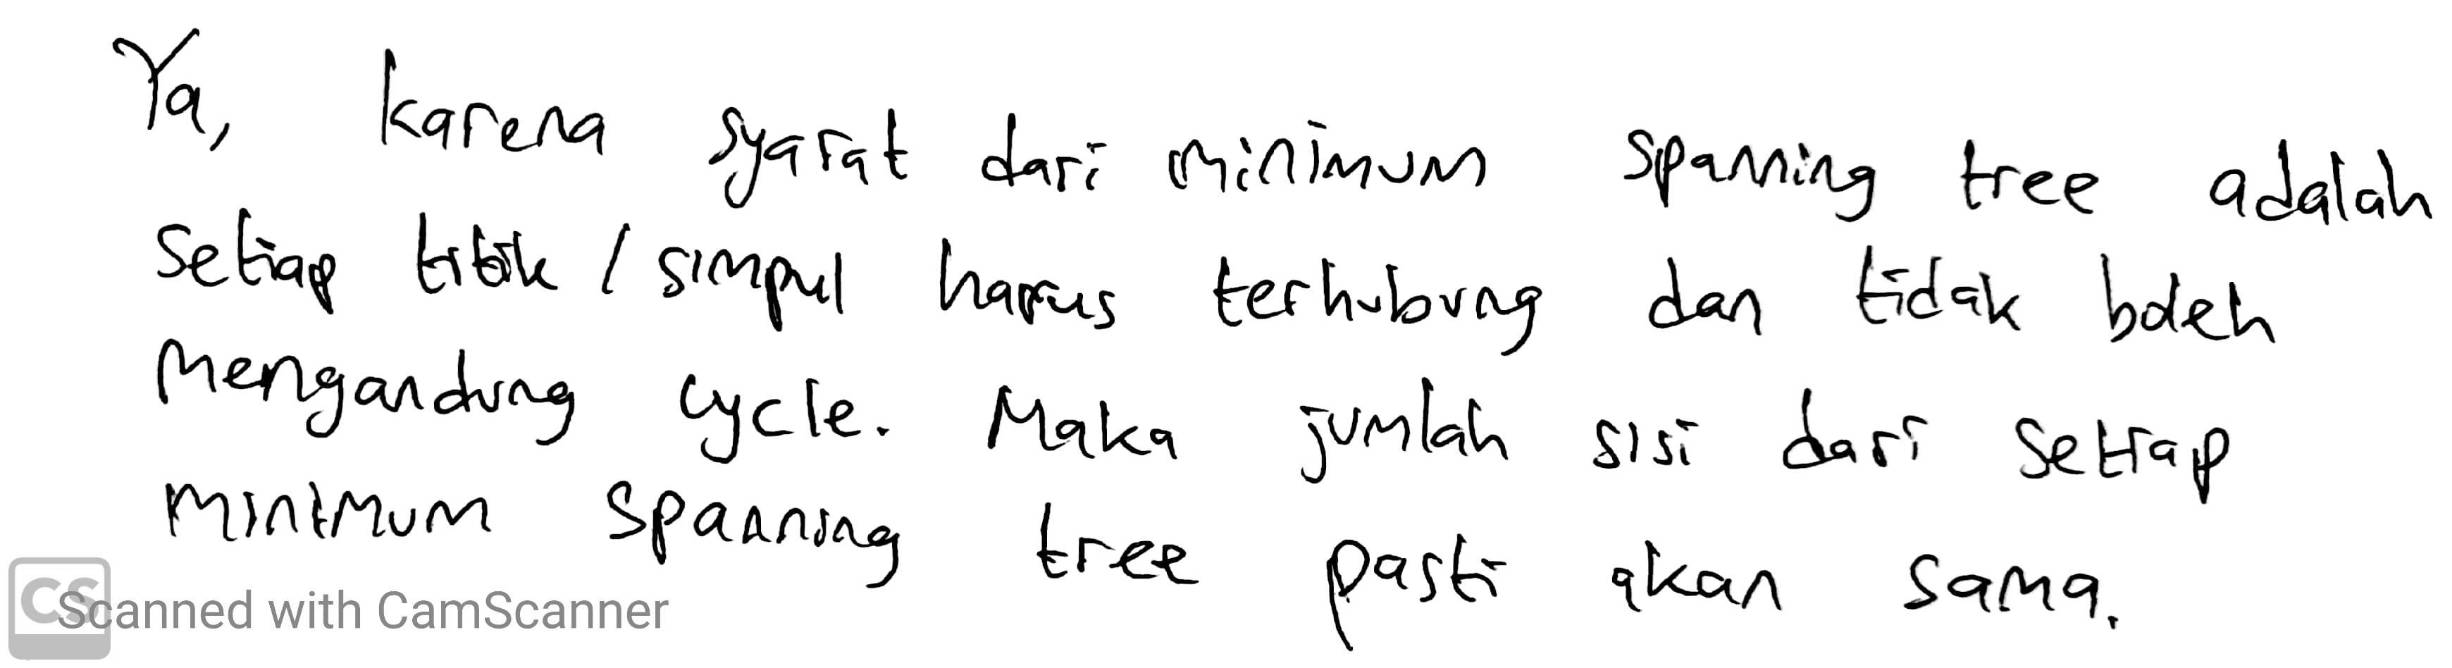 Ya, karena syarat dari minimum spanning tree adalah
setiap titik / simpul harus terhubung dan tidak boleh
mengandung cycle. Maka jumlah sisi dari setiap
minimum spanning tree pasti akan sama.
CS Scanned with CamScanner